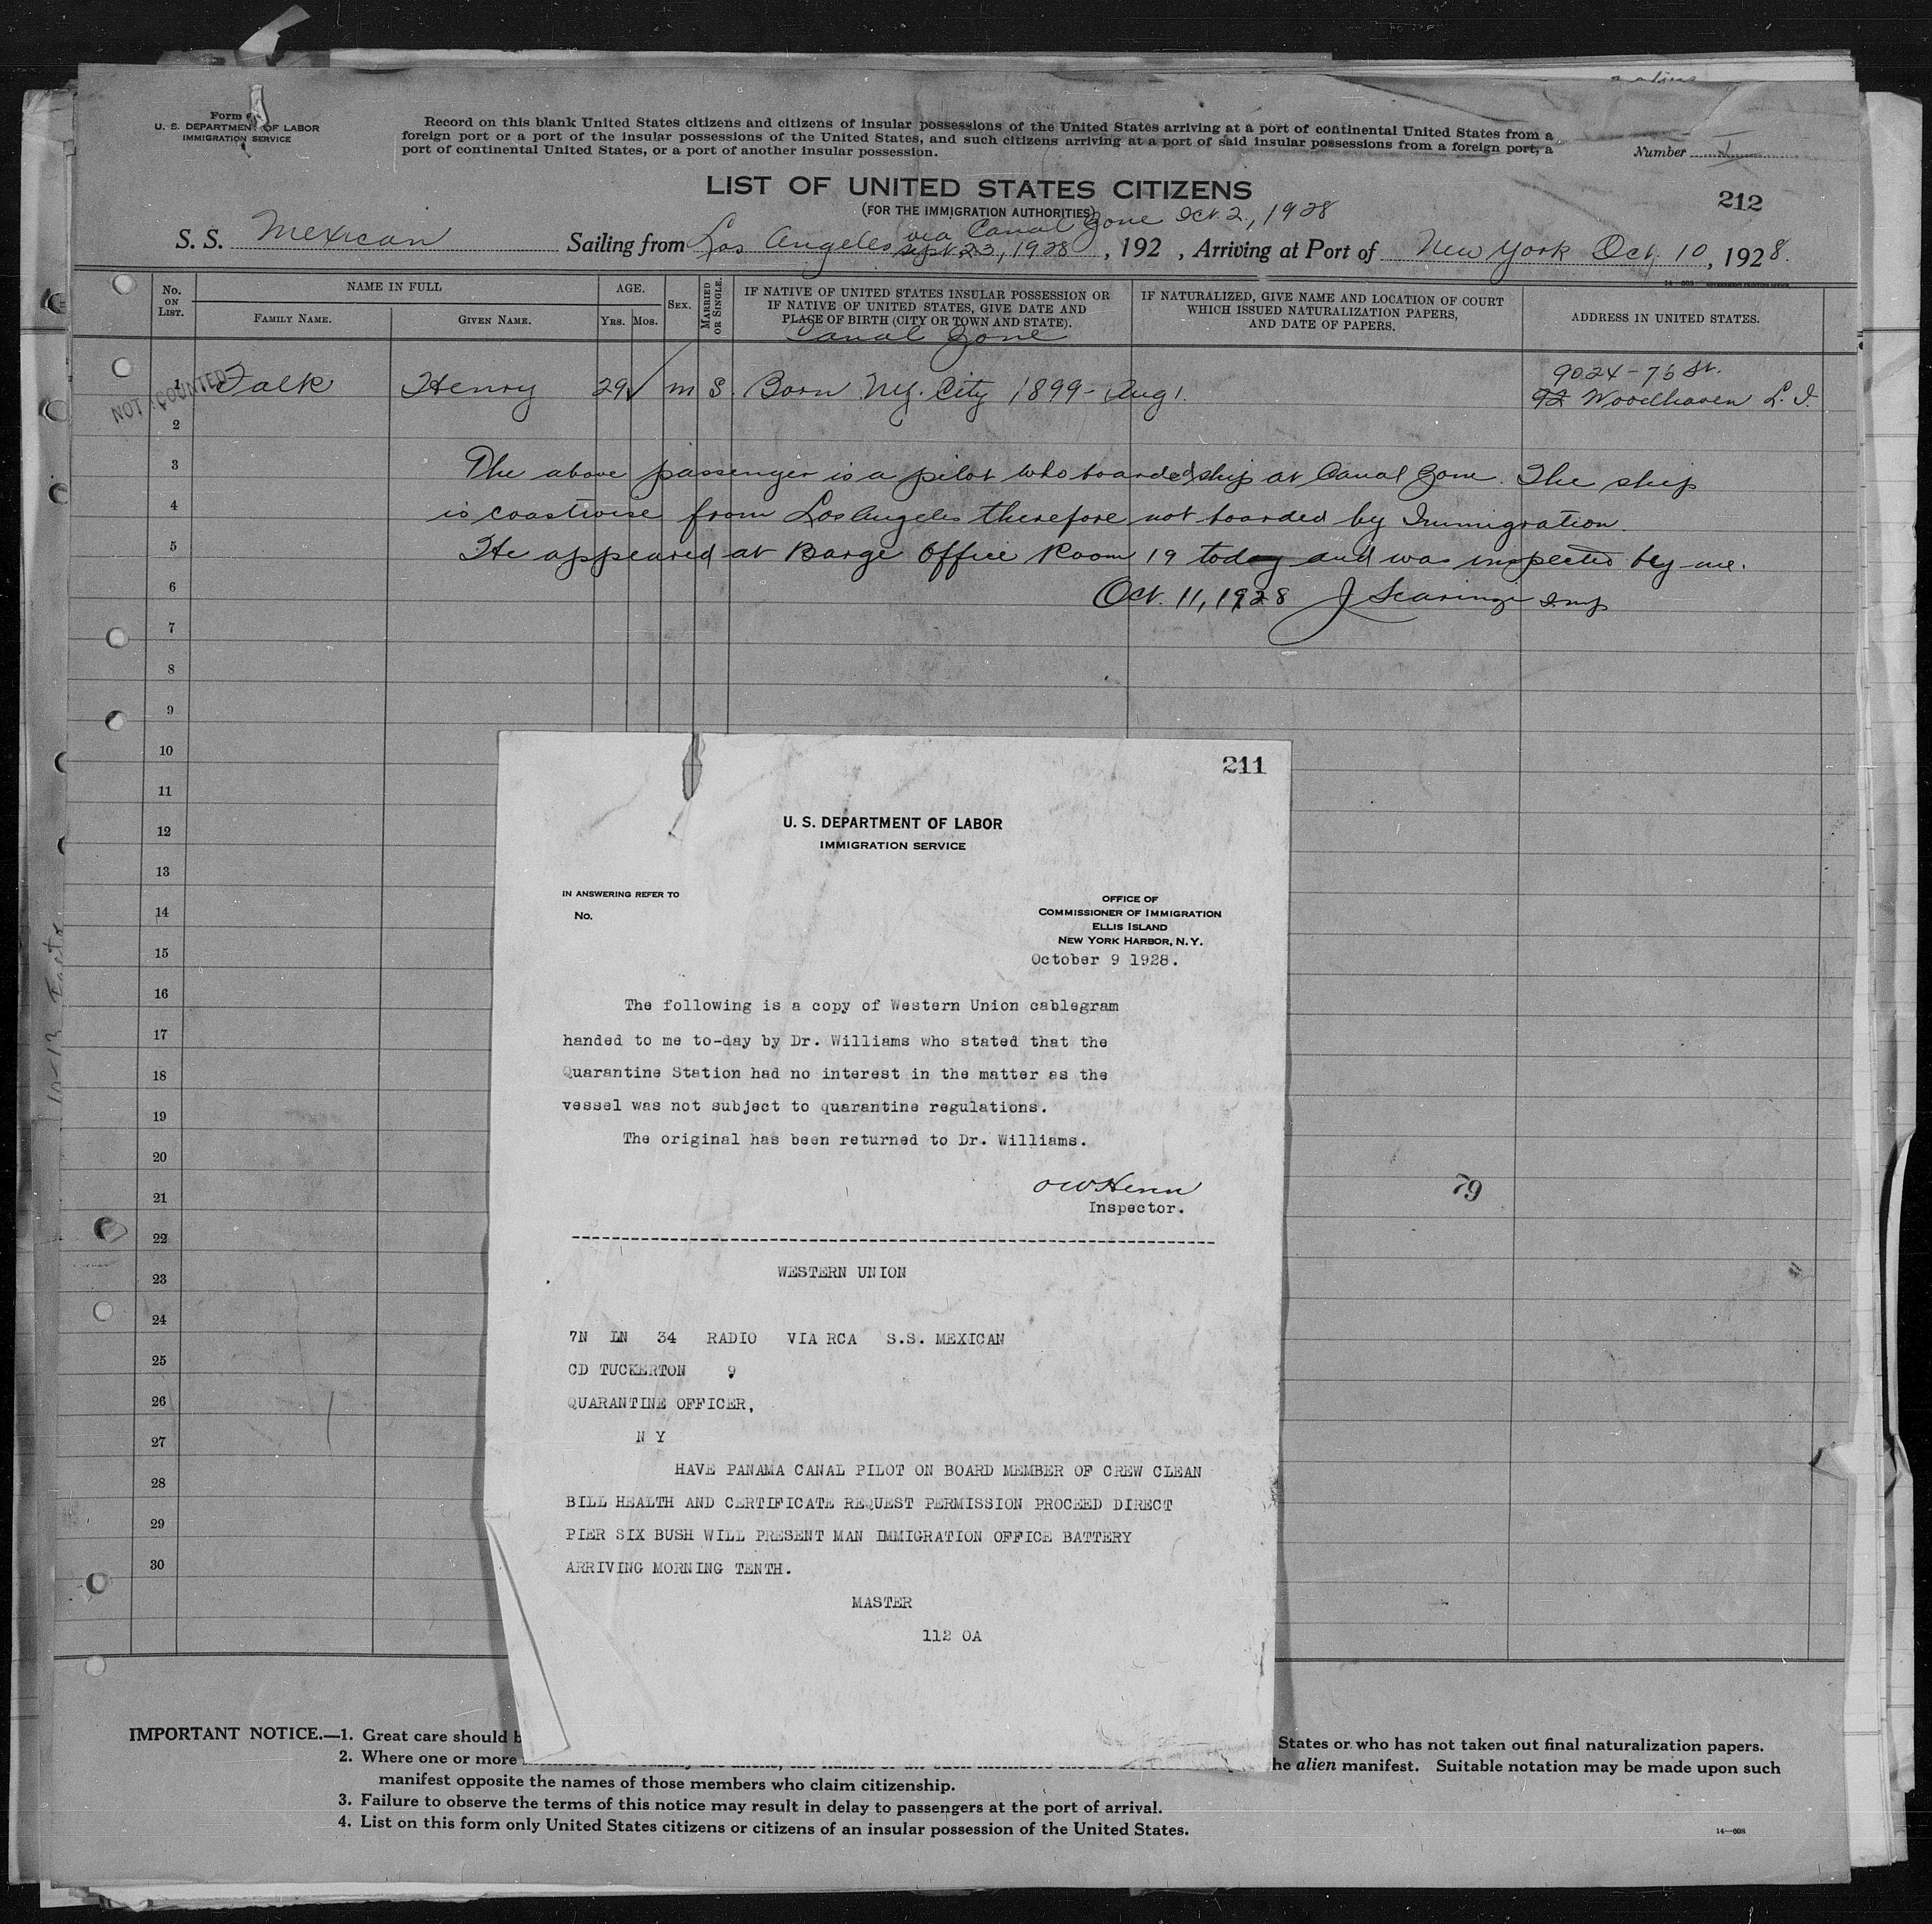 Form
U. S. DEPARTMENT OF LABOR
IMMIGRATION SERVICE
Record on this blank United States citizens and citizens of insular possessions of the United States arriving at a port of continental United States from a
foreign port or a port of the insular possessions of the United States, and such citizens arriving at a port of said insular possessions from a foreign port, a
port of continental United States, or a port of another insular possession.
Number 1
LIST OF UNITED STATES CITIZENS
212
(FOR THE IMMIGRATION AUTHORITIES)
via Canal Zone Oct. 2, 1928
S. S. Mexican Sailing from Los Angeles Sept. 23, 1928, 192 , Arriving at Port of New York Oct. 10, 1928.
No. ON LIST.
NAME IN FULL
FAMILY NAME.
GIVEN NAME.
AGE.
YRS.
MOS.
SEX.
MARRIED OR SINGLE.
IF NATIVE OF UNITED STATES INSULAR POSSESSION OR
IF NATIVE OF UNITED STATES, GIVE DATE AND
PLACE OF BIRTH (CITY OR TOWN AND STATE).
IF NATURALIZED, GIVE NAME AND LOCATION OF COURT
WHICH ISSUED NATURALIZATION PAPERS,
AND DATE OF PAPERS.
ADDRESS IN UNITED STATES.
Canal Zone
NOT COUNTED
1 Falk Henry 29 m S. Born N.Y. City 1899 - Aug 1.
9024 - 75 St.
Woodhaven L. I.
2
3 The above passenger is a pilot who boarded ship at Canal Zone. The ship
4 is coastwise from Los Angeles therefore not boarded by Immigration.
5 He appeared at Barge Office Room 19 today and was inspected by me.
6 Oct. 11, 1928 J Scaringi Insp
7
8
9
10
11
12
13
14
15
16
17
18
19
20
21
22
23
24
25
26
27
28
29
30
79
211
U. S. DEPARTMENT OF LABOR
IMMIGRATION SERVICE
IN ANSWERING REFER TO
No.
OFFICE OF
COMMISSIONER OF IMMIGRATION
ELLIS ISLAND
NEW YORK HARBOR, N. Y.
October 9 1928.
The following is a copy of Western Union cablegram
handed to me to-day by Dr. Williams who stated that the
Quarantine Station had no interest in the matter as the
vessel was not subject to quarantine regulations.
The original has been returned to Dr. Williams.
O W Henn
Inspector.
WESTERN UNION
7N LN 34 RADIO VIA RCA S.S. MEXICAN
CD TUCKERTON 9
QUARANTINE OFFICER,
N Y
HAVE PANAMA CANAL PILOT ON BOARD MEMBER OF CREW CLEAN
BILL HEALTH AND CERTIFICATE REQUEST PERMISSION PROCEED DIRECT
PIER SIX BUSH WILL PRESENT MAN IMMIGRATION OFFICE BATTERY
ARRIVING MORNING TENTH.
MASTER
112 0A
IMPORTANT NOTICE.—1. Great care should
States or who has not taken out final naturalization papers.
2. Where one or more
alien manifest. Suitable notation may be made upon such
manifest opposite the names of those members who claim citizenship.
3. Failure to observe the terms of this notice may result in delay to passengers at the port of arrival.
4. List on this form only United States citizens or citizens of an insular possession of the United States.
14—608